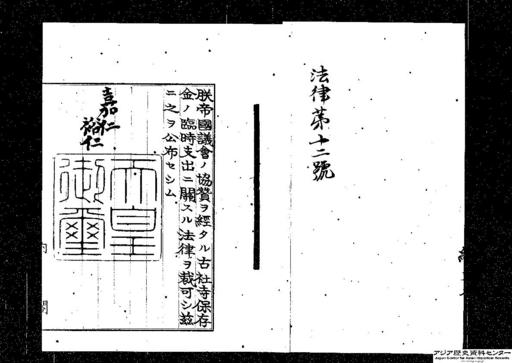 法律第十二號
朕帝國議會ノ協贊ヲ經タル古社寺保存
金ノ臨時支出ニ關スル法律ヲ裁可シ玆
ニ之ヲ公布セシム
嘉仁
裕仁
天皇
御璽
内閣
アジア歴史資料センター
Japan Center for Asian Historical Records